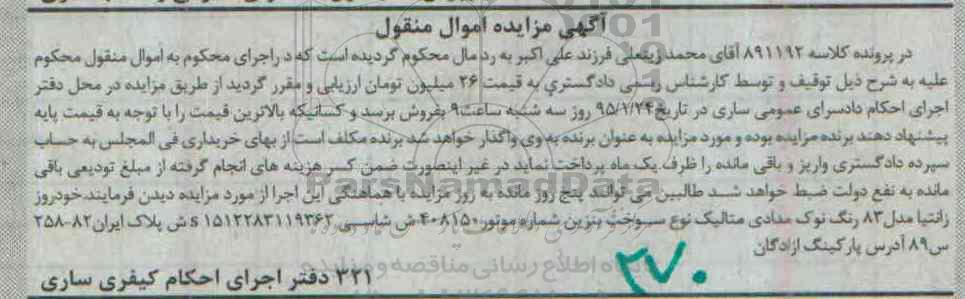 آگهی مزایده اموال منقول
در پرونده کلاسه ۸۹۱۱۹۲ آقای محمد زیفعلی فرزند علی اکبر به رد مال محکوم گردیده است که در اجرای محکوم به اموال منقول محکوم
علیه به شرح ذیل توقیف و توسط کارشناس رسمی دادگستری به قیمت ۲۶ میلیون تومان ارزیابی و مقرر گردید از طریق مزایده در محل دفتر
اجرای احکام دادسرای عمومی ساری در تاریخ ۹۵/۱/۲۴ روز سه شنبه ساعت ۹ بفروش برسد و کسانیکه بالاترین قیمت را با توجه به قیمت پایه
پیشنهاد دهند برنده مزایده بوده و مورد مزایده به عنوان برنده به وی واگذار خواهد شد برنده مکلف است از بهای خریداری فی المجلس به حساب
سپرده دادگستری واریز و باقی مانده را ظرف یک ماه پرداخت نماید در غیر اینصورت ضمن کسر هزینه های انجام گرفته از مبلغ تودیعی باقی
مانده به نفع دولت ضبط خواهد شد طالبین می توانند پنج روز مانده به روز مزایده با هماهنگی این اجرا از مورد مزایده دیدن فرمایند.خودروز
زانتیا مدل ۸۳ رنگ نوک مدادی متالیک نوع سوخت بنزین شماره موتور ۴۰۸۱۵۰ ش شاسی s ۱۵۱۲۲۸۳۱۱۹۳۶۲ ش پلاک ایران ۸۲-۲۵۸
س۸۹ آدرس پارکینگ ازادگان
۳۲۱ دفتر اجرای احکام کیفری ساری
۲۷۰
ParsNamadData
پایگاه اطلاع رسانی مناقصه و مزایده